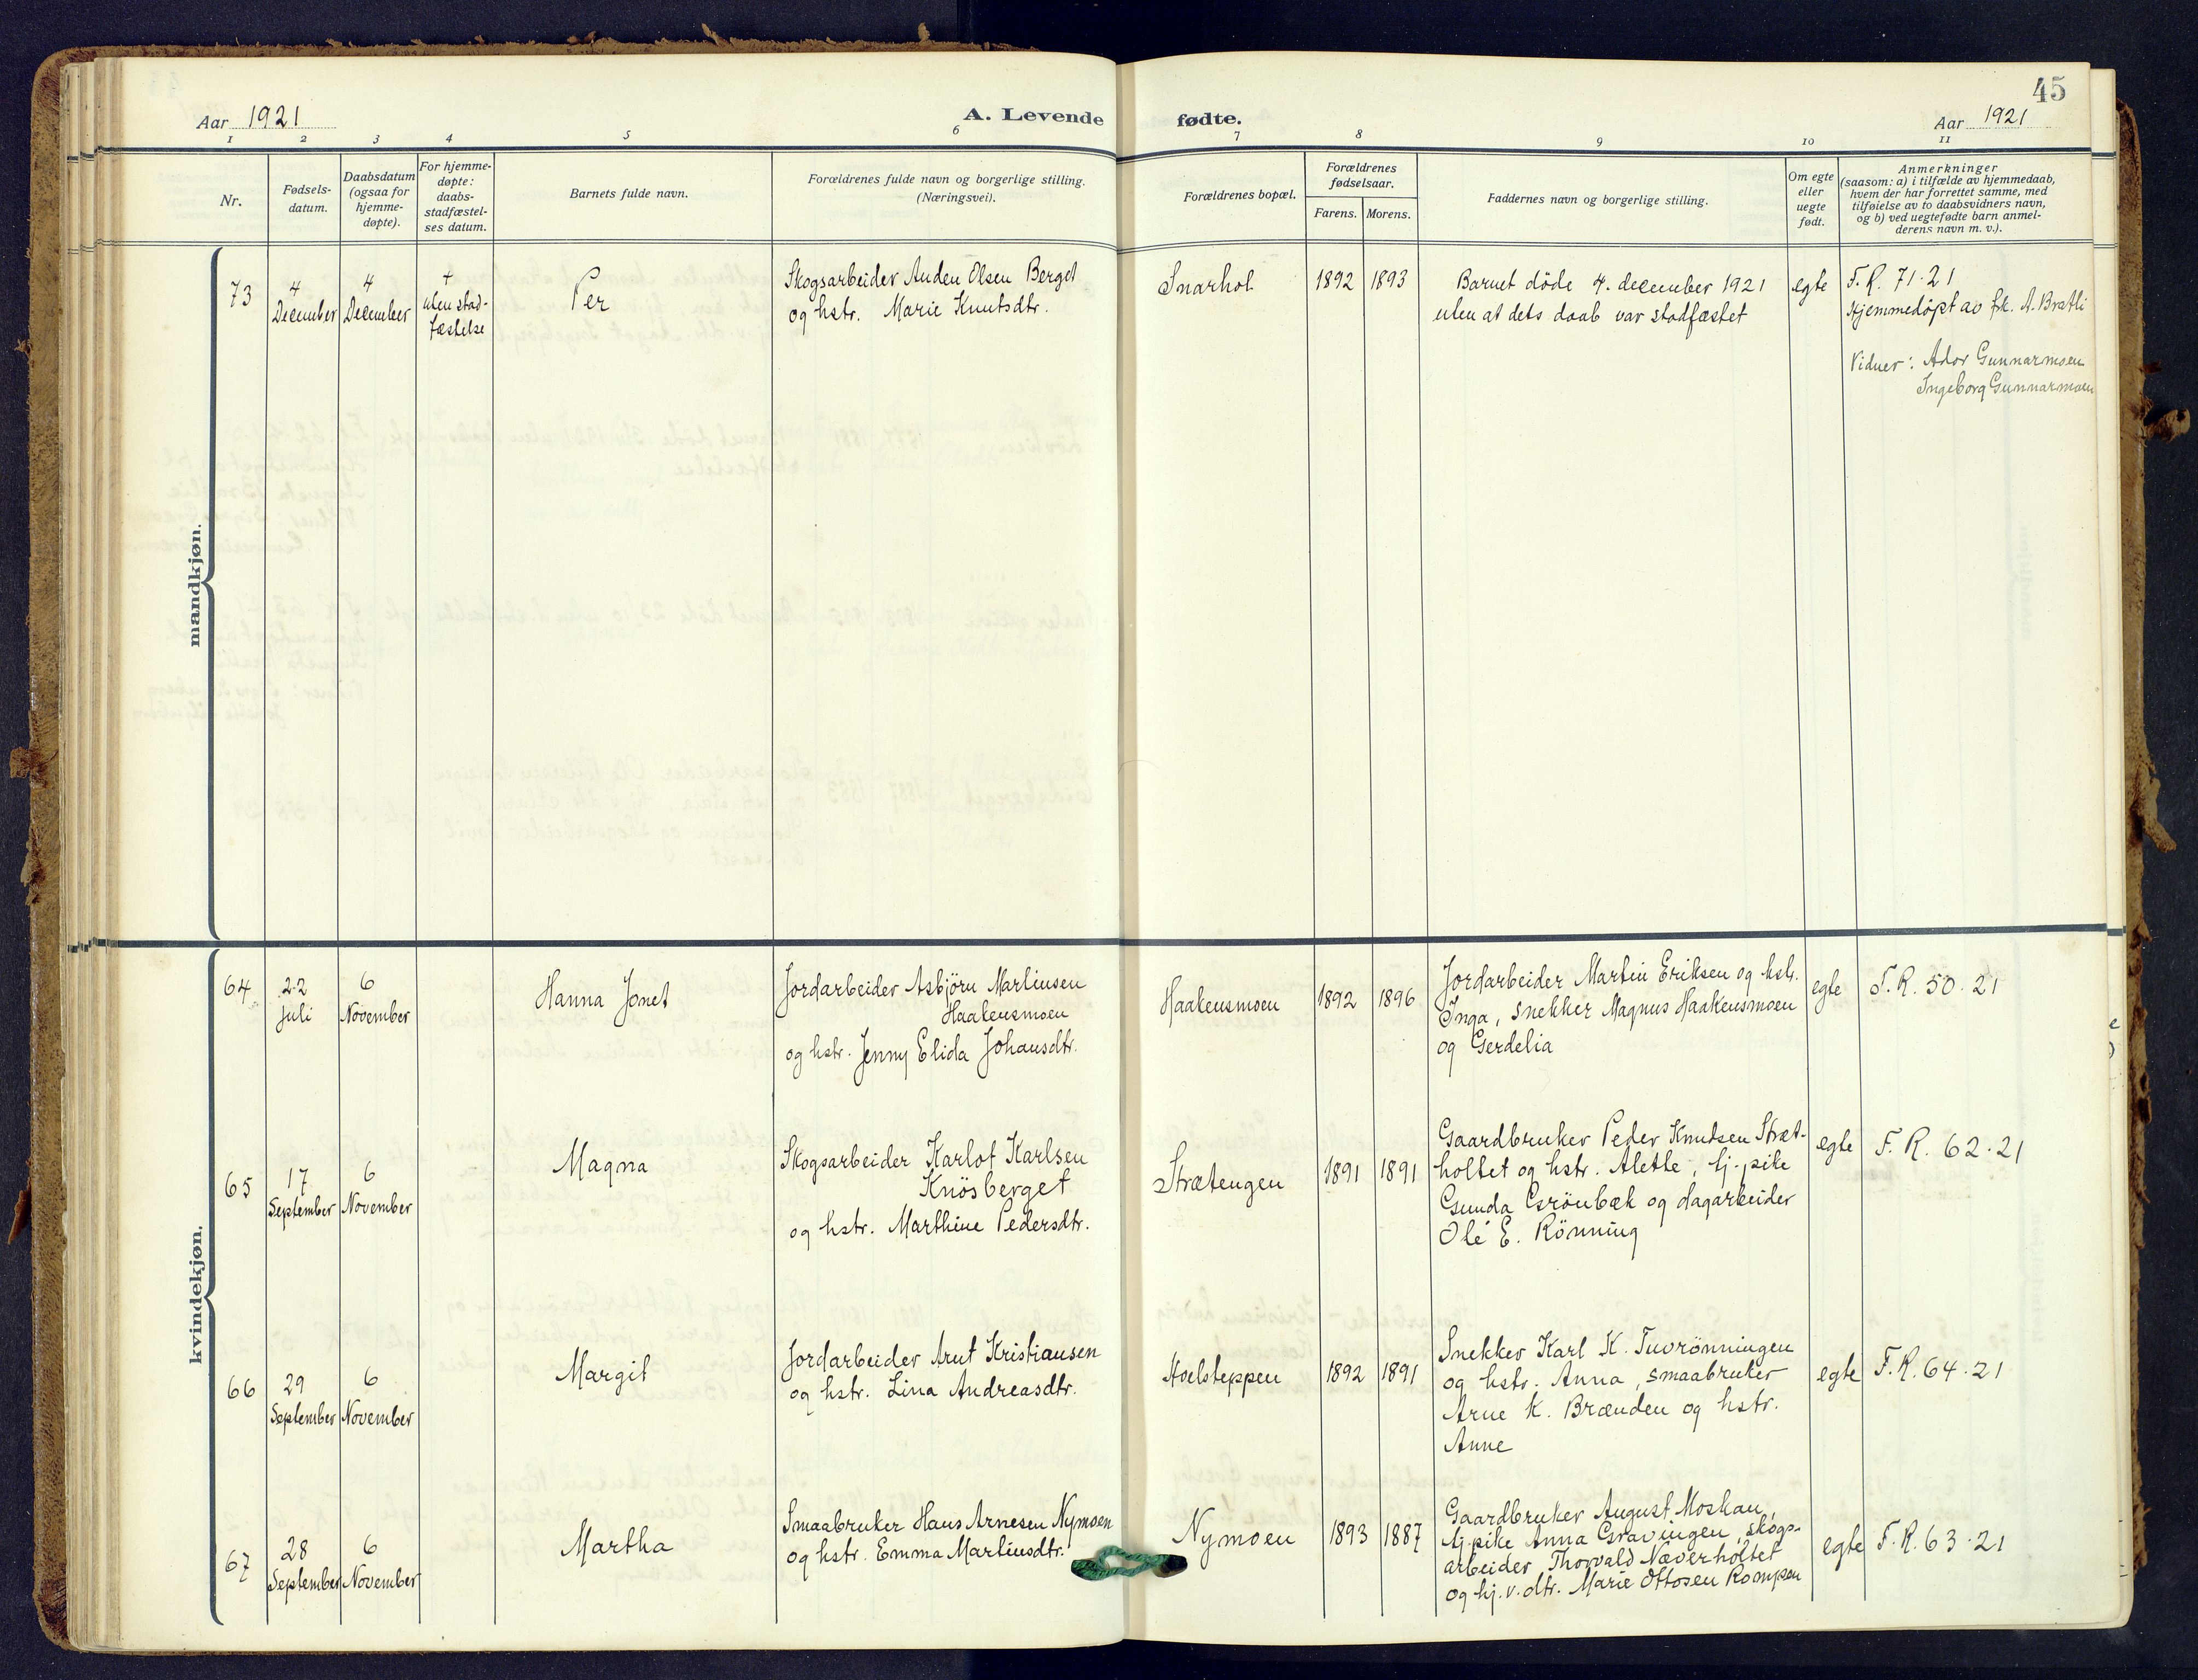 45
Aar 1921
A. Levende fødte.
Aar 1921
1 2 3 4 5 6 7 8 9 10 11
Nr.
Fødsels-
datum.
Daabsdatum
(ogsaa for
hjemme-
døpte).
For hjemme-
døpte:
daabs-
stadfæstel-
ses datum.
Barnets fulde navn.
Forældrenes fulde navn og borgerlige stilling.
(Næringsvei).
Forældrenes bopæl.
Forældrenes
fødselsaar.
Farens.
Morens.
Faddernes navn og borgerlige stilling.
Om egte
eller
uegte
født.
Anmerkninger
(saasom: a) i tilfælde av hjemmedaab,
hvem der har forrettet samme, med
tilføielse av to daabsvidners navn,
og b) ved uegtefødte barn anmel-
derens navn m. v.).
mandkjøn.
73
4
December
4
December
+
uten stad-
fæstelse
Per
Skogsarbeider Auden Olsen Berget
og hstr. Marie Knutsdtr.
Snarhol
1892
1893
Barnet döde 4. december 1921
uten at dets daab var stadfæstet
egte
F. R. 71-21
Hjemmedøpt av frk. A. Brætli
Vidner: Ador Gunnarmoen
Ingeborg Gunnarmoen
kvindekjøn.
64
22
juli
6
November
Hanna Jonet
Jordarbeider Asbjörn Martinsen
Haakensmoen
og hstr. Jenny Elida Johansdtr.
Haakensmoen
1892
1896
Jordarbeider Martin Eriksen og hstr.
Inga, snekker Magnus Haakensmoen
og Gerdelia
egte
F. R. 50-21
65
17
September
6
November
Magna
Skogsarbeider Karlot Karlsen
Knösberget
og hstr. Marthine Pedersdtr.
Strætengen
1891
1891
Gaardbruker Peder Knudsen Stræt-
holtet og hstr. Alette, tj.-pike
Gunda Grönbæk og dagarbeider
Ole E. Rönning
egte
F. R. 62-21
66
29
September
6
November
Margit
Jordarbeider Arnt Kristiansen
og hstr. Lina Andreasdtr.
Hoelsteppen
1892
1891
Snekker Karl K. Tuvrönningen
og hstr. Anna, smaabruker
Arne K. Brænden og hstr.
Anne
egte
F. R. 64-21
67
28
September
6
November
Martha
Smaabruker Hans Arnesen Nymoen
og hstr. Emma Martinsdtr.
Nymoen
1893
1887
Gaardbruker August Moskau,
tj.pike Anna Gravingen, skogs-
arbeider Thorvald Næverholtet
og hj.v. dtr. Marie Ottosen Rompen
egte
F. R. 63-21